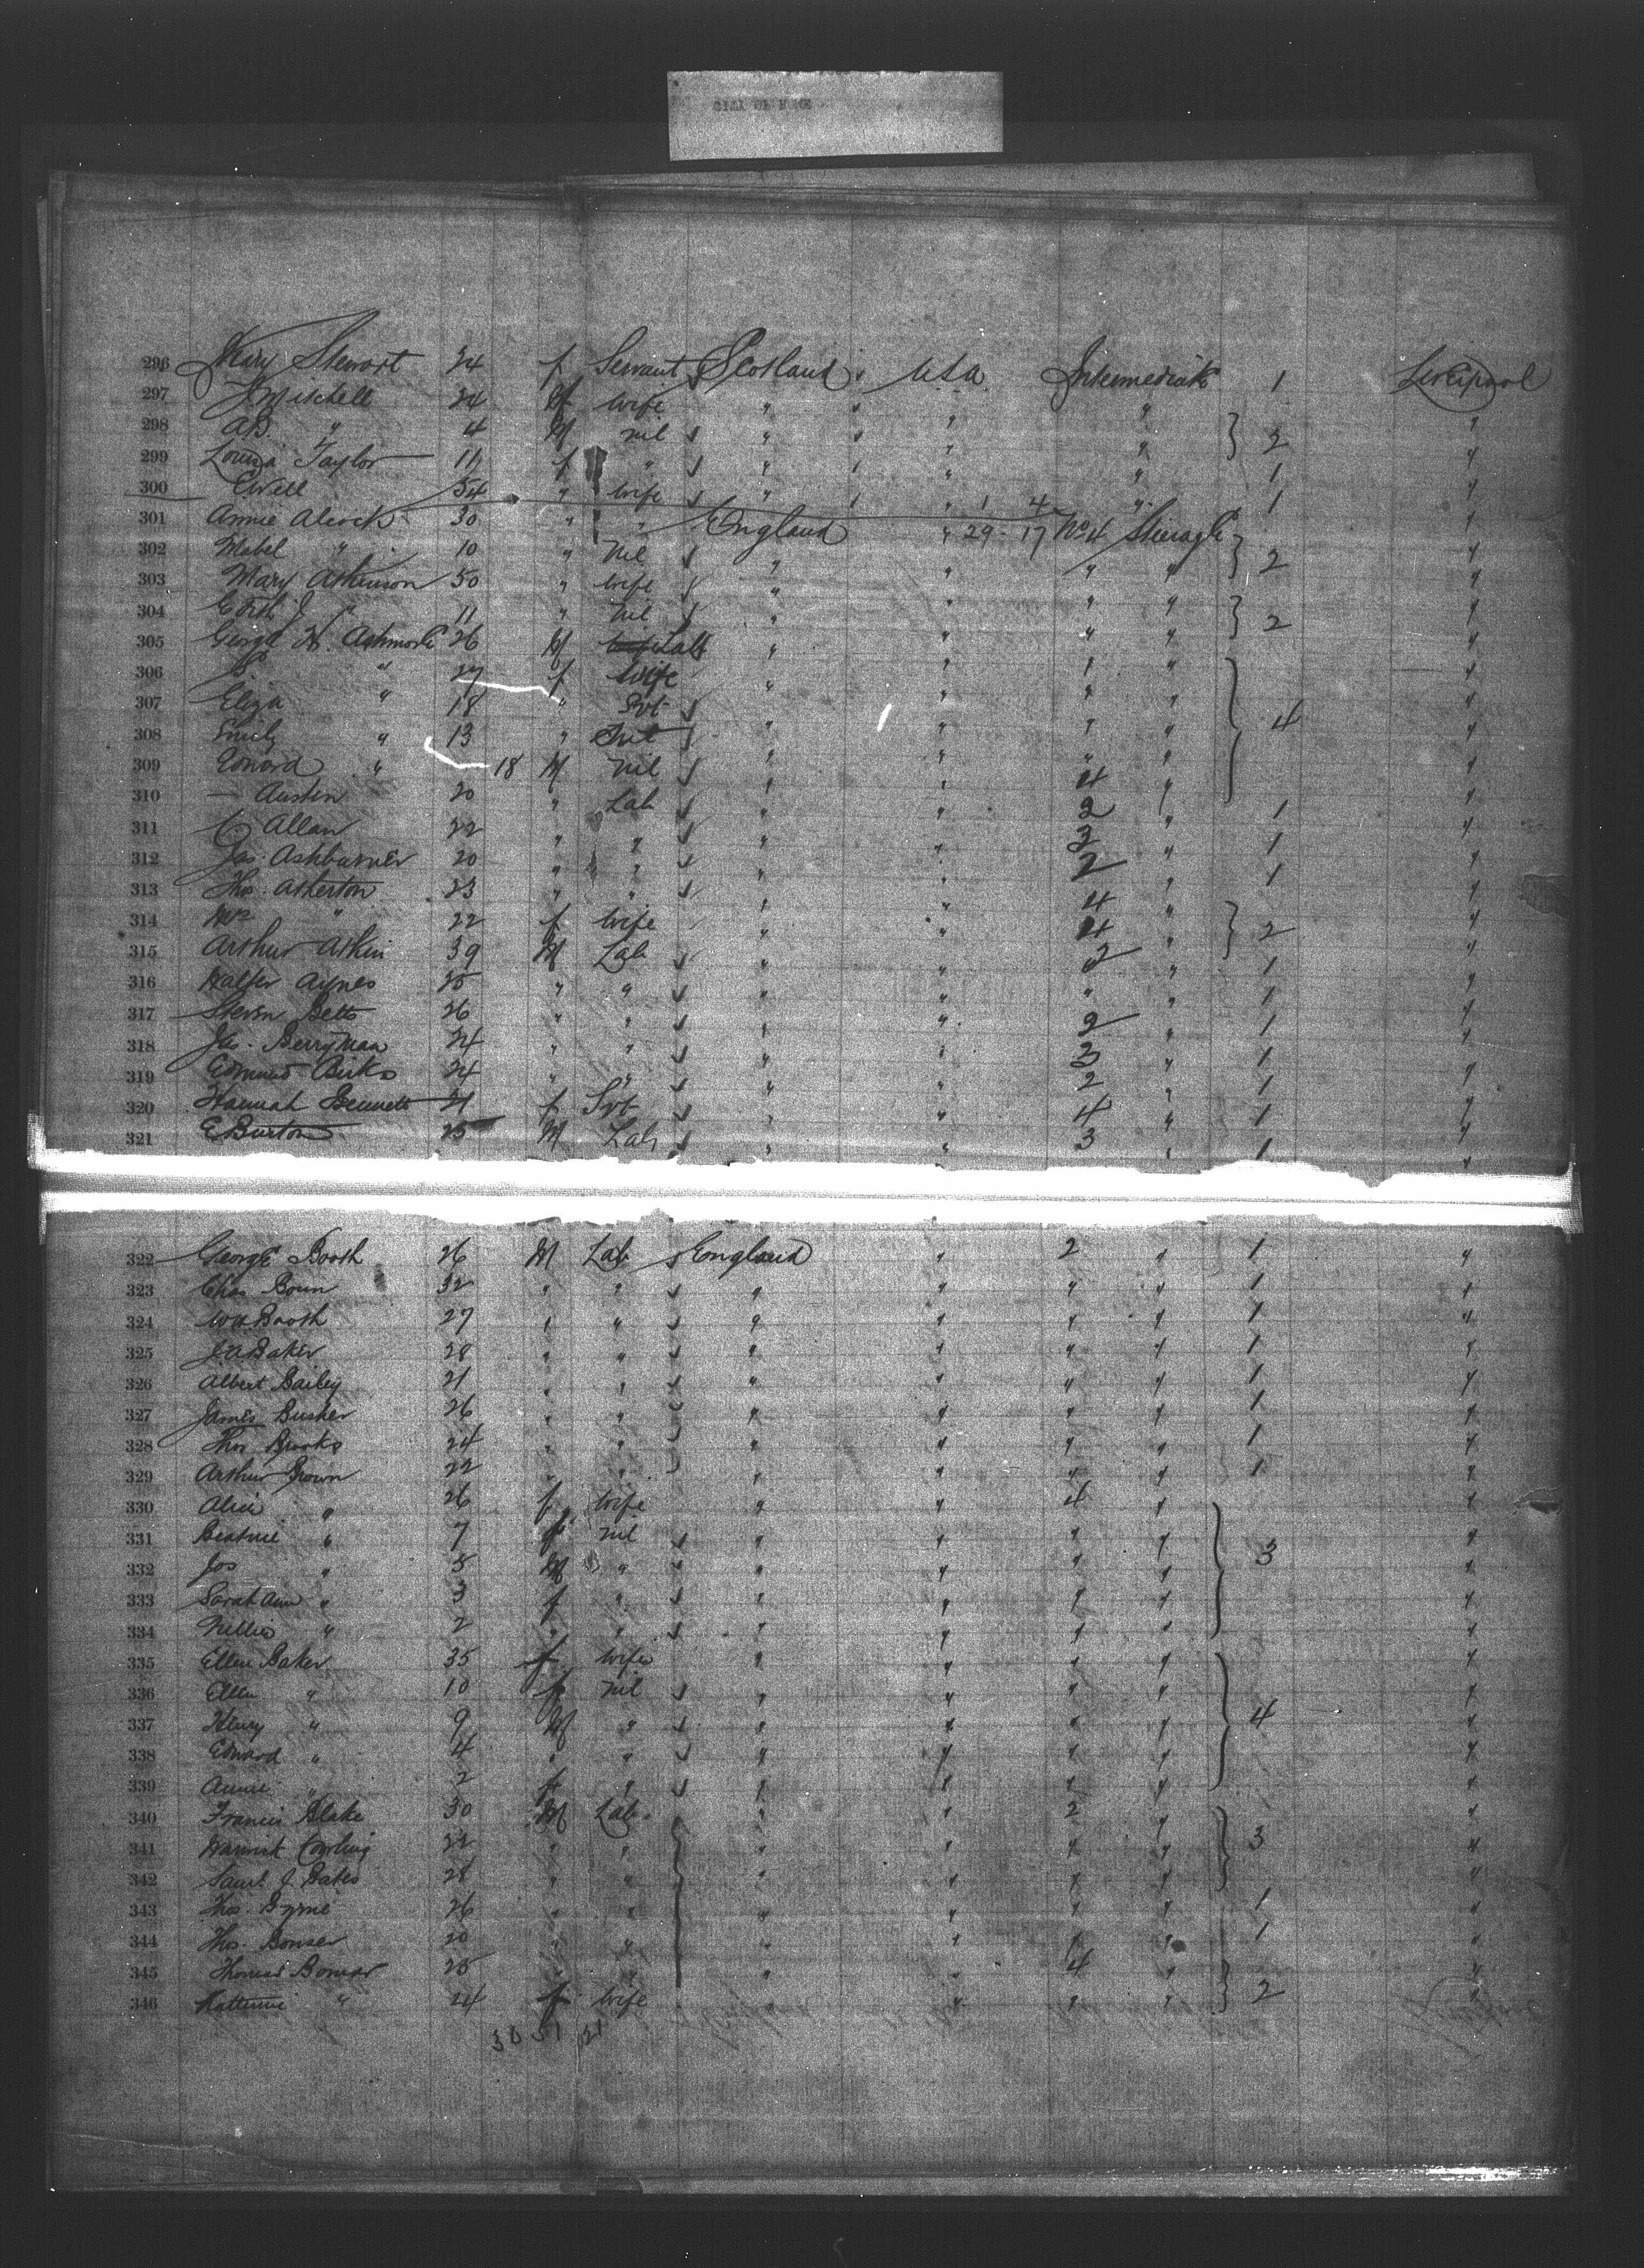 CITY OF ROME
296 Mary Stewart 24 f Servant Scotland " USA Intermediate 1 Liverpool
297 Mitchell 24 f wife " " " " "
298 AB " 4 M nil " " " " } 2 "
299 Louisa Taylor 11 f " " " " " 1 "
300 Ewell 54 " wife " " " 1 4 " 1 "
301 Annie Alcock 30 " " England " 29-17 No 4 Steerage "
302 Mabel " 10 " Nil " " " " } 2 "
303 Mary Atkinson 50 " wife " " " " "
304 Edith J " 11 " Nil " " " " } 2 "
305 George H. Ashmore 26 M Lab " " " " "
306 " 27 f wife " " " " "
307 Eliza " 18 " Svt " " " " } 4 "
308 Emily " 13 " Nil " " " " "
309 Edward " 18 M Nil " " 4 " "
310 — Austen 20 " Lab " " 2 " 1 "
311 C Allan 22 " " " " 3 " 1 "
312 Jas. Ashburner 20 " " " " 2 " 1 "
313 Thos. Atherton 23 " " " " 4 " "
314 Mrs " 22 f wife " " 4 " } 2 "
315 Arthur Atkin 39 M Lab " " 2 " 1 "
316 Walter Aynes 25 " " " " " " 1 "
317 Steven Betts 26 " " " " 2 " 1 "
318 Jas. Berryman 24 " " " " 3 " 1 "
319 Edmund Birks 24 " " " " 2 " 1 "
320 Hannah Bennett 21 f Svt " " 4 " 1 "
321 E Burton 25 M Lab " " 3 " 1 "
322 George Booth 26 M Lab England " 2 " 1 "
323 Chas 32 " " " " " " 1 "
324 Wm Booth 27 " " " " " " 1 "
325 J A Baker 28 " " " " " " 1 "
326 Albert Bailey 21 " " " " " " 1 "
327 James Busher 26 " " " " " " 1 "
328 Thos Brooks 24 " " " " " " 1 "
329 Arthur Brown 22 " " " " " " 1 "
330 Alice " 26 f wife " " 4 " "
331 Beatrice " 7 f nil " " " " "
332 Jos " 5 M " " " " " } 3 "
333 Sarah Ann " 3 f " " " " " "
334 Nellie " 2 " " " " " " "
335 Ellen Baker 35 f wife " " " " "
336 Ellen " 10 f nil " " " " "
337 Henry " 9 M " " " " " } 4 "
338 Edward " 4 " " " " " " "
339 Annie " 2 f " " " " " "
340 Francis Blake 30 M Lab " " 2 " "
341 22 " " " " " " } 3 "
342 Saml J. Bates 28 " " " " " " "
343 Thos. Byrne 26 " " " " " " 1 "
344 Thos. Bonser 20 " " " " " " 1 "
345 Thomas 25 " " " " 4 " "
346 Katherine " 24 f wife " " " " } 2 "
30 51 21